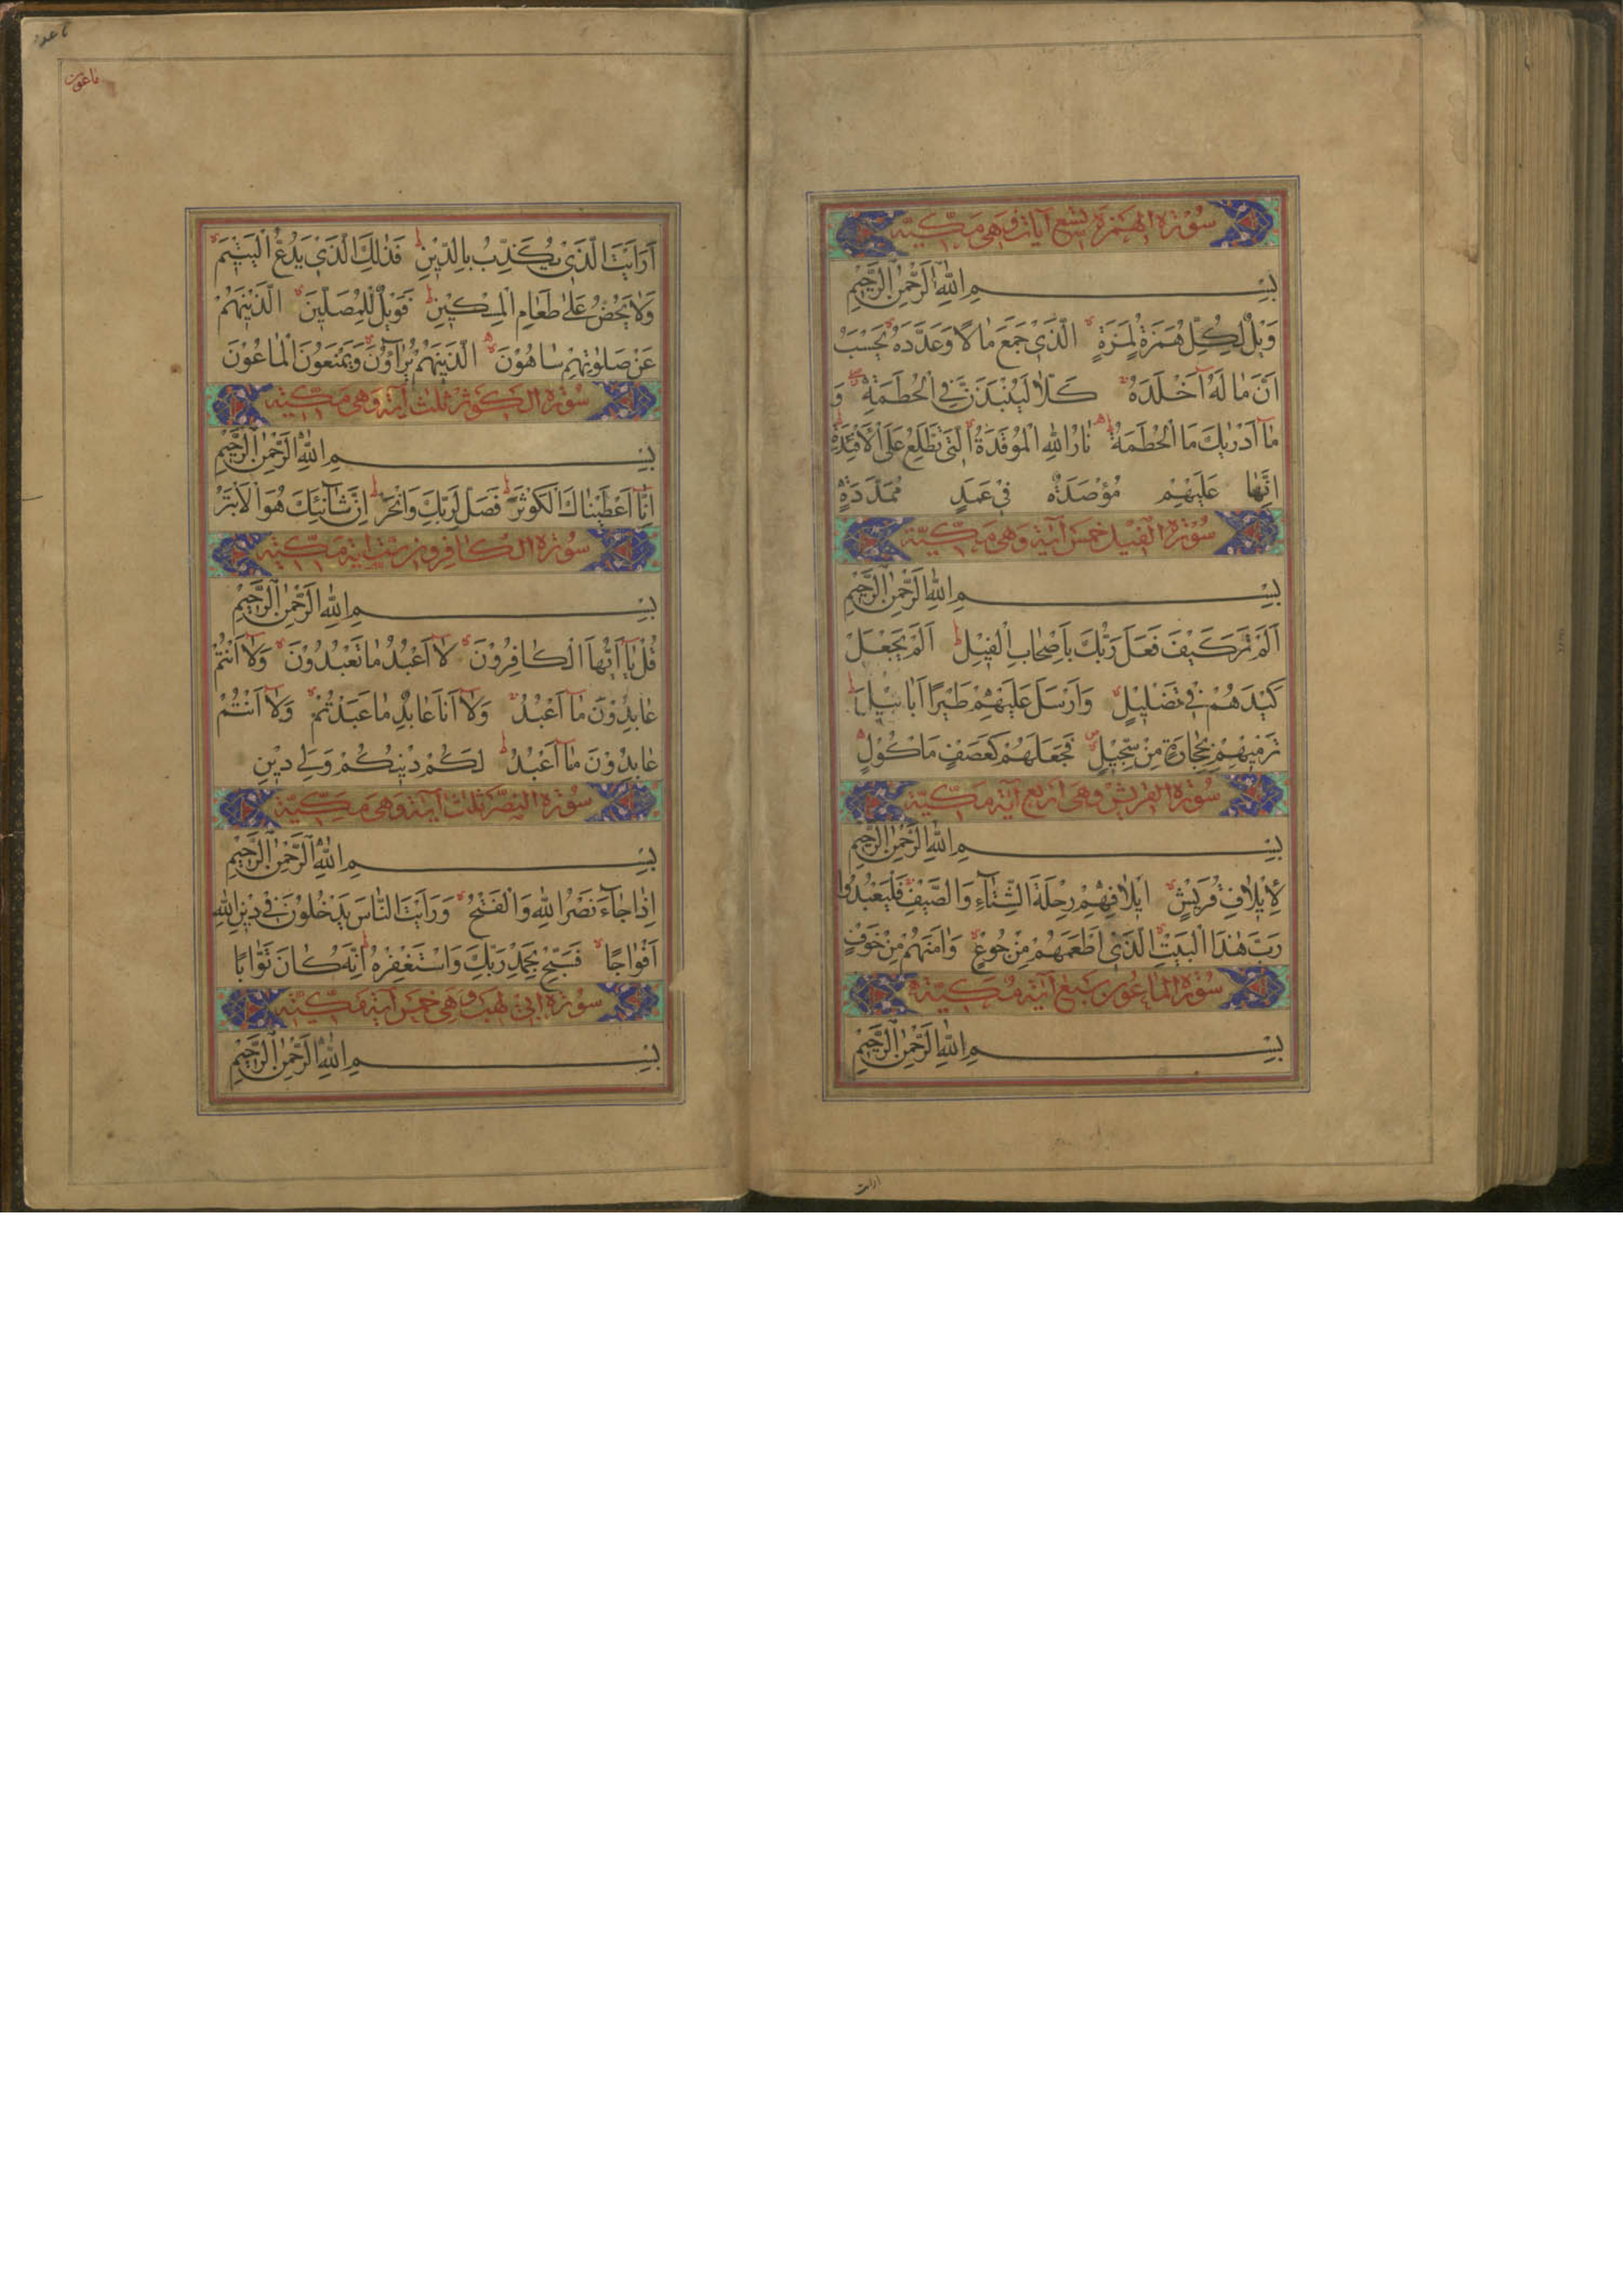 سُوْرَة الهُمَزَة تِسْع آيات وَهِيَ مَكِّيَّة
بِسْمِ اللّٰهِ الرَّحْمٰنِ الرَّحِيْمِ
وَيْلٌ لِكُلِّ هُمَزَةٍ لُمَزَةٍ الَّذِيْ جَمَعَ مٰالًا وَعَدَّدَهُ يَحْسَبُ
اَنَّ مٰالَهُ اَخْلَدَهُ كَلّٰا لَيُنْبَذَنَّ فِي الْحُطَمَةِ وَ
مٰا اَدْرٰيكَ مَا الْحُطَمَةُ نٰارُ اللّٰهِ الْمُوْقَدَةُ الَّتِيْ تَطَّلِعُ عَلَى الْاَفْئِدَةِ
اِنَّهٰا عَلَيْهِمْ مُؤْصَدَةٌ فِيْ عَمَدٍ مُمَدَّدَةٍ
سُوْرَة الفِيْل خَمْس آيَة وَهِيَ مَكِّيَّة
بِسْمِ اللّٰهِ الرَّحْمٰنِ الرَّحِيْمِ
اَلَمْ تَرَ كَيْفَ فَعَلَ رَبُّكَ بِاَصْحٰابِ الْفِيْلِ اَلَمْ يَجْعَلْ
كَيْدَهُمْ فِيْ تَضْلِيْلٍ وَاَرْسَلَ عَلَيْهِمْ طَيْرًا اَبٰابِيْلَ
تَرْمِيْهِمْ بِحِجٰارَةٍ مِنْ سِجِّيْلٍ فَجَعَلَهُمْ كَعَصْفٍ مَأْكُوْلٍ
سُوْرَة القريش وَهِيَ اَرْبَع آيَة مَكِّيَّة
بِسْمِ اللّٰهِ الرَّحْمٰنِ الرَّحِيْمِ
لِاِيْلٰافِ قُرَيْشٍ اِيْلٰافِهِمْ رِحْلَةَ الشِّتٰاءِ وَالصَّيْفِ فَلْيَعْبُدُوا
رَبَّ هٰذَا الْبَيْتِ الَّذِيْ اَطْعَمَهُمْ مِنْ جُوْعٍ وَاٰمَنَهُمْ مِنْ خَوْفٍ
سُوْرَة الماعُون سَبْع آيَة مَكِّيَّة
بِسْمِ اللّٰهِ الرَّحْمٰنِ الرَّحِيْمِ
ارايت
ماعون
اَرَاَيْتَ الَّذِيْ يُكَذِّبُ بِالدِّيْنِ فَذٰلِكَ الَّذِيْ يَدُعُّ الْيَتِيْمَ
وَلٰا يَحُضُّ عَلٰى طَعٰامِ الْمِسْكِيْنِ فَوَيْلٌ لِلْمُصَلِّيْنَ الَّذِيْنَ هُمْ
عَنْ صَلٰوتِهِمْ سٰاهُوْنَ الَّذِيْنَ هُمْ يُرٰاؤُنَ وَيَمْنَعُوْنَ الْمٰاعُوْنَ
سُوْرَة الكَوْثَر ثَلٰث آيَة وَهِيَ مَكِّيَّة
بِسْمِ اللّٰهِ الرَّحْمٰنِ الرَّحِيْمِ
اِنّٰا اَعْطَيْنٰاكَ الْكَوْثَرَ فَصَلِّ لِرَبِّكَ وَانْحَرْ اِنَّ شٰانِئَكَ هُوَ الْاَبْتَرُ
سُوْرَة الكٰافِرون ست اية مَكِّيَّة
بِسْمِ اللّٰهِ الرَّحْمٰنِ الرَّحِيْمِ
قُلْ يٰا اَيُّهَا الْكٰافِرُوْنَ لٰا اَعْبُدُ مٰا تَعْبُدُوْنَ وَلٰا اَنْتُمْ
عٰابِدُوْنَ مٰا اَعْبُدُ وَلٰا اَنَا عٰابِدٌ مٰا عَبَدْتُمْ وَلٰا اَنْتُمْ
عٰابِدُوْنَ مٰا اَعْبُدُ لَكُمْ دِيْنُكُمْ وَلِيَ دِيْنِ
سُوْرَة النَّصْر ثَلٰث آيَة وَهِيَ مَكِّيَّة
بِسْمِ اللّٰهِ الرَّحْمٰنِ الرَّحِيْمِ
اِذٰا جٰاءَ نَصْرُ اللّٰهِ وَالْفَتْحُ وَرَاَيْتَ النّٰاسَ يَدْخُلُوْنَ فِيْ دِيْنِ اللّٰهِ
اَفْوٰاجًا فَسَبِّحْ بِحَمْدِ رَبِّكَ وَاسْتَغْفِرْهُ اِنَّهُ كٰانَ تَوّٰابًا
سُوْرَة ابي لهب وَهِيَ خَمْس آيَة مَكِّيَّة
بِسْمِ اللّٰهِ الرَّحْمٰنِ الرَّحِيْمِ